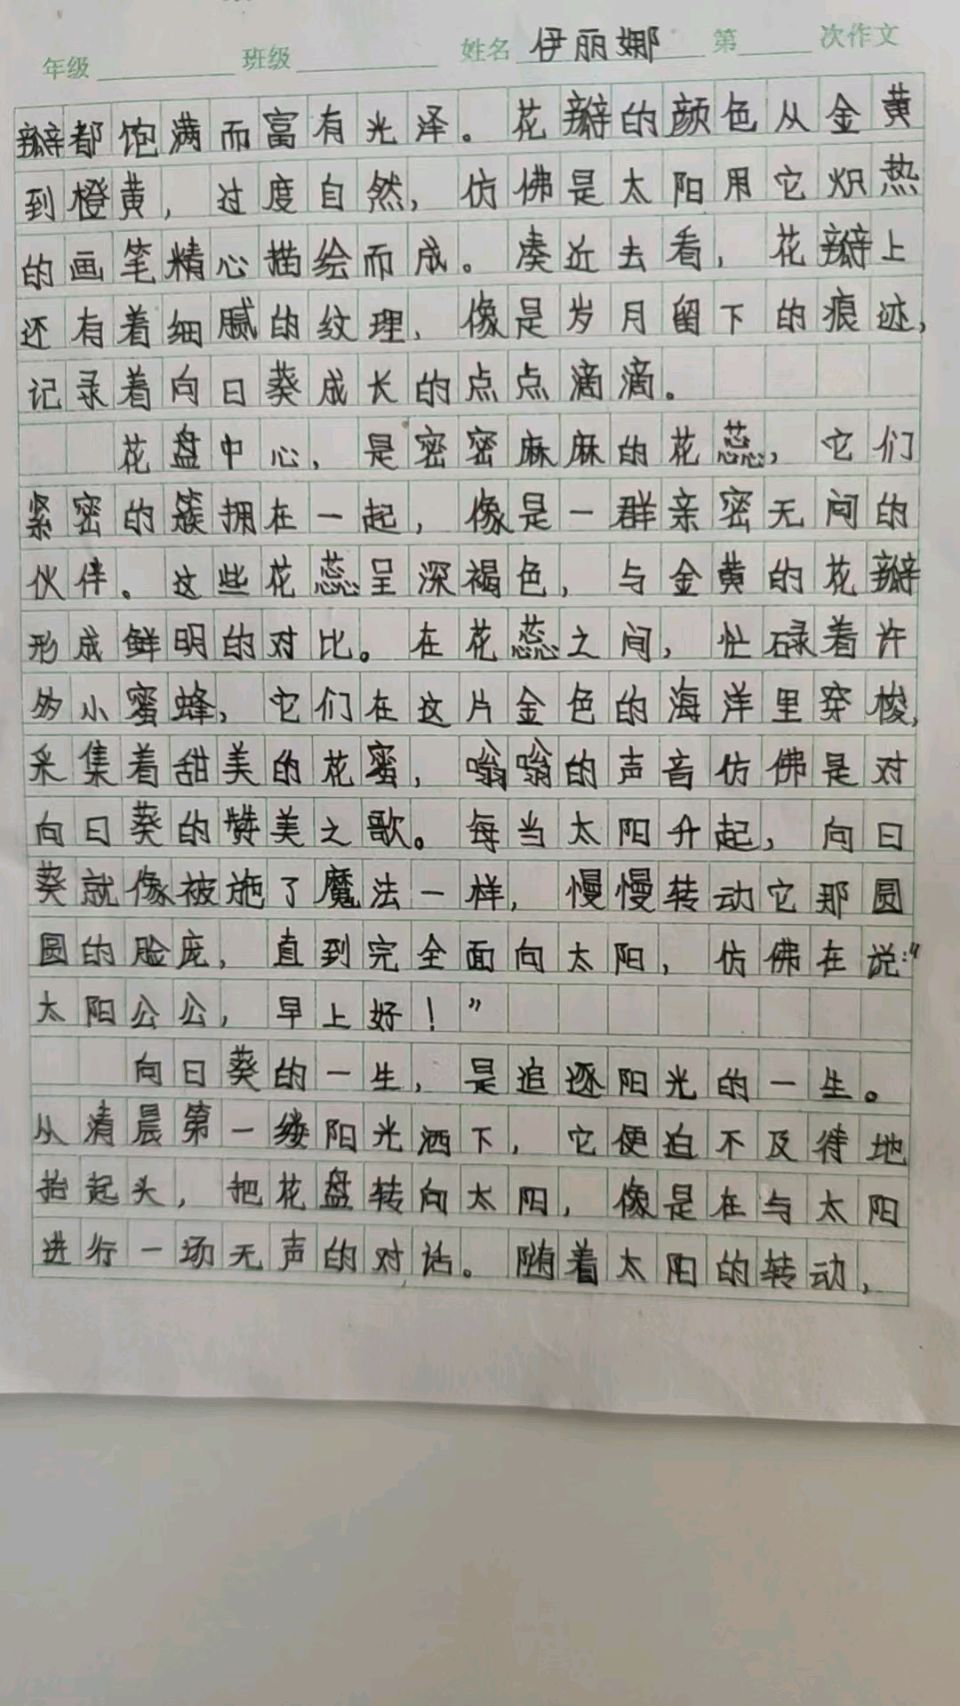 年级 班级 姓名 伊丽娜 第 次作文
瓣都饱满而富有光泽。花瓣的颜色从金黄
到橙黄，过度自然，仿佛是太阳用它炽热
的画笔精心描绘而成。凑近去看，花瓣上
还有着细腻的纹理，像是岁月留下的痕迹，
记录着向日葵成长的点点滴滴。
花盘中心，是密密麻麻的花蕊，它们
紧密的簇拥在一起，像是一群亲密无间的
伙伴。这些花蕊呈深褐色，与金黄的花瓣
形成鲜明的对比。在花蕊之间，忙碌着许
多小蜜蜂，它们在这片金色的海洋里穿梭，
采集着甜美的花蜜，嗡嗡的声音仿佛是对
向日葵的赞美之歌。每当太阳升起，向日
葵就像被施了魔法一样，慢慢转动它那圆
圆的脸庞，直到完全面向太阳，仿佛在说：“
太阳公公，早上好！”
向日葵的一生，是追逐阳光的一生。
从清晨第一缕阳光洒下，它便迫不及待地
抬起头，把花盘转向太阳，像是在与太阳
进行一场无声的对话。随着太阳的转动，